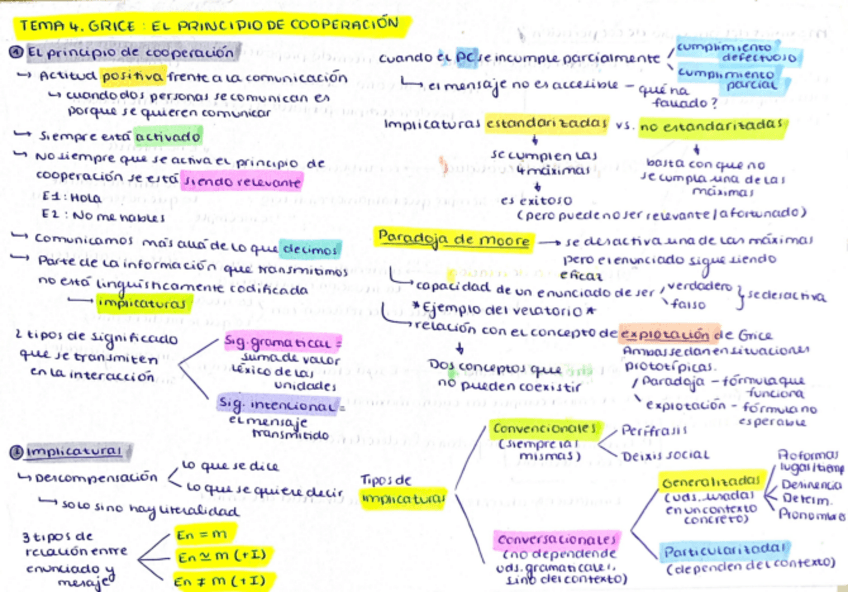 TEMA 4. GRICE: EL PRINCIPIO DE COOPERACIÓN
① El principio de cooperación
↳ Actitud positiva frente a la comunicación
↳ cuando dos personas se comunican es
porque se quieren comunicar
↳ siempre está activado
↳ No siempre que se activa el principio de
cooperación se está siendo relevante
E1: Hola
E2: No me hables
↳ Comunicamos más allá de lo que decimos
↳ Parte de la información que transmitimos
no está lingüísticamente codificada
↳ implicaturas
2 tipos de significado
que se transmiten
en la interacción
Sig. gramatical =
suma de valor
léxico de las
unidades
Sig. intencional =
el mensaje
transmitido
Implicaturas
↳ Descompensación
lo que se dice
lo que se quiere decir
↳ solo si no hay literalidad
3 tipos de
relación entre
enunciado y
mensaje
En = m
En ≃ m (+I)
En ≠ m (+I)
cuando el PC se incumple parcialmente
cumplimiento
defectuoso
cumplimiento
parcial
↳ el mensaje no es accesible - qué ha
fallado?
Implicaturas estandarizadas vs. no estandarizadas
se cumplen las
4 máximas
es exitoso
(pero puede no ser relevante/afortunado)
basta con que no
se cumpla una de las
máximas
Paradoja de Moore → se desactiva una de las máximas
pero el enunciado sigue siendo
eficaz
capacidad de un enunciado de ser
verdadero
falso
se desactiva
*Ejemplo del velatorio*
relación con el concepto de explotación de Grice
Dos conceptos que
no pueden coexistir
Ambas se dan en situaciones
prototípicas.
Paradoja - fórmula que
funciona
explotación - fórmula no
esperable
Tipos de
implicaturas
Convencionales
(siempre las
mismas)
Perífrasis
Deixis social
Conversacionales
(no depende de
uds. gramaticales,
sino del contexto)
Generalizadas
(uds. usadas
en un contexto
concreto)
Proformas
lugar/tiemp
Desinencia
Determ.
Pronombres
Particularizadas
(dependen del contexto)